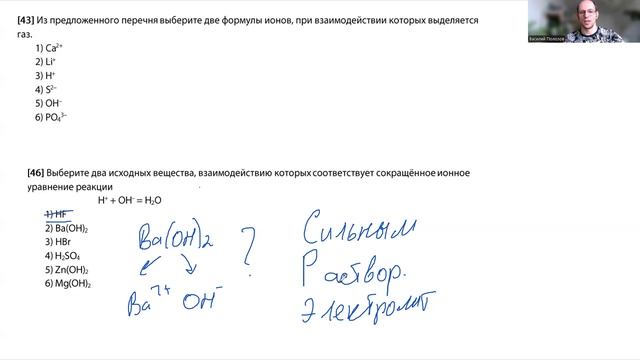 [43] Из предложенного перечня выберите две формулы ионов, при взаимодействии которых выделяется
газ.
1) Ca²⁺
2) Li⁺
3) H⁺
4) S²⁻
5) OH⁻
6) PO₄³⁻
Василий Полозов
[46] Выберите два исходных вещества, взаимодействию которых соответствует сокращённое ионное
уравнение реакции
H⁺ + OH⁻ = H₂O
1) HF
2) Ba(OH)₂
3) HBr
4) H₂SO₄
5) Zn(OH)₂
6) Mg(OH)₂
Ba(OH)₂ ?
Ba²⁺ OH⁻
Сильным
Раствор.
Электролит